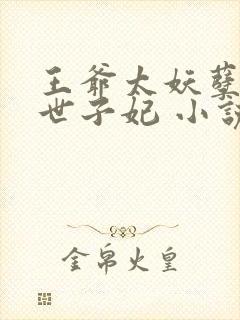 王爷太妖孽
世子妃 小說
金帛火皇